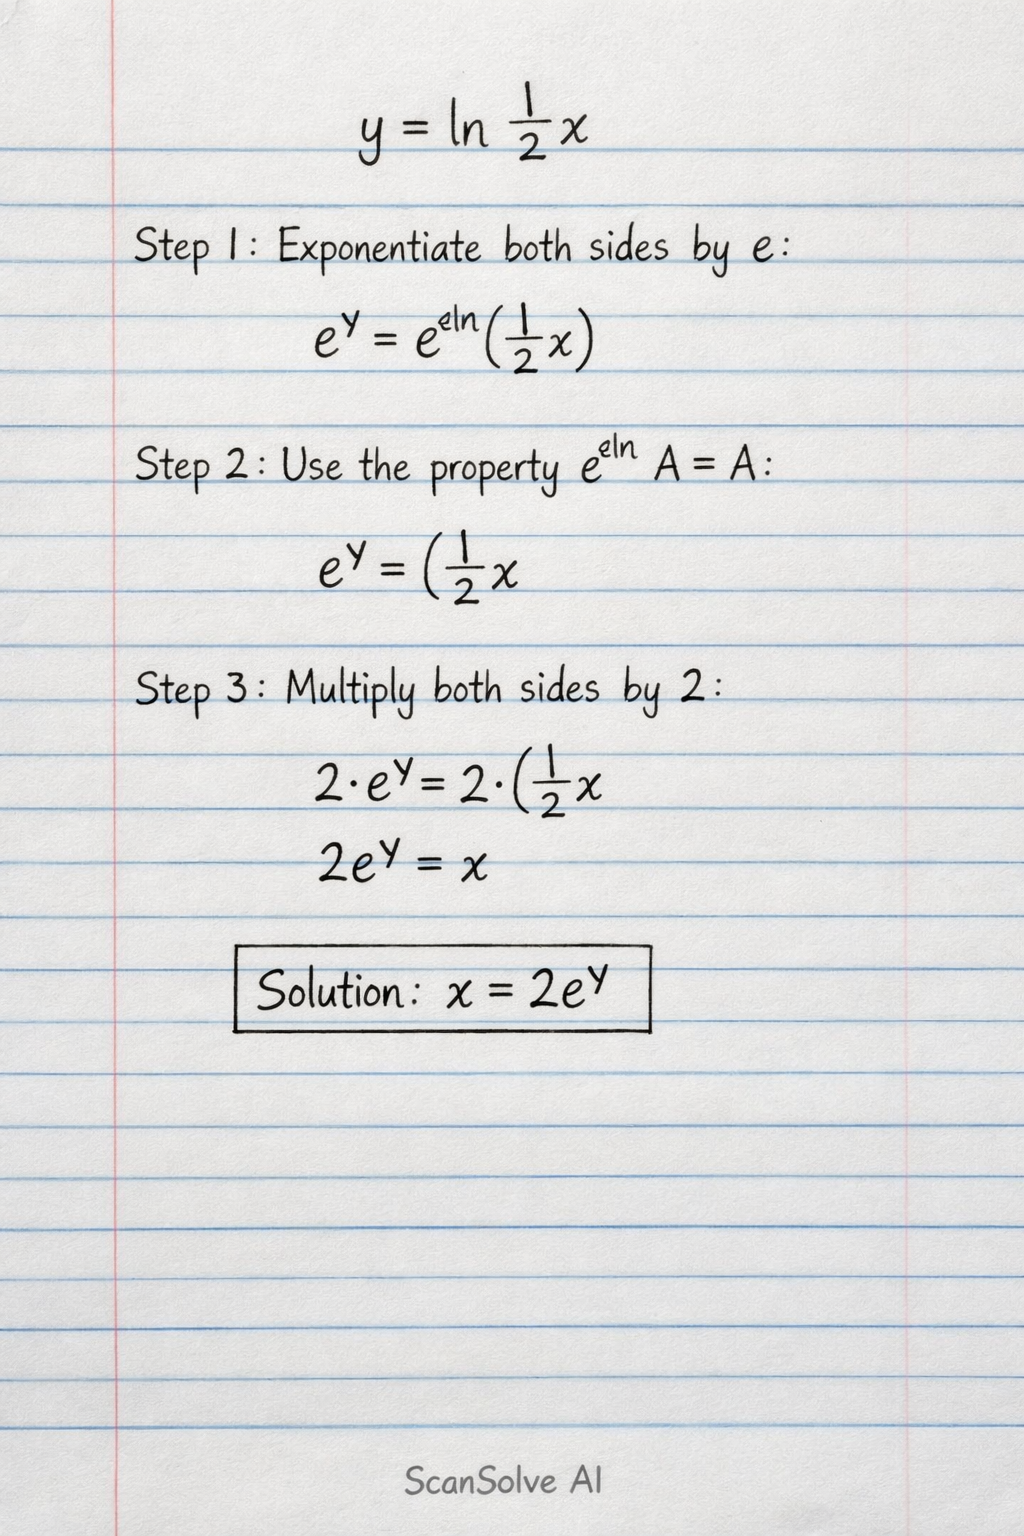 y = ln 1/2 x
Step 1: Exponentiate both sides by e:
e^y = e^eln (1/2 x)
Step 2: Use the property e^eln A = A:
e^y = (1/2 x
Step 3: Multiply both sides by 2:
2·e^y = 2·(1/2 x
2e^y = x
Solution: x = 2e^y
ScanSolve AI